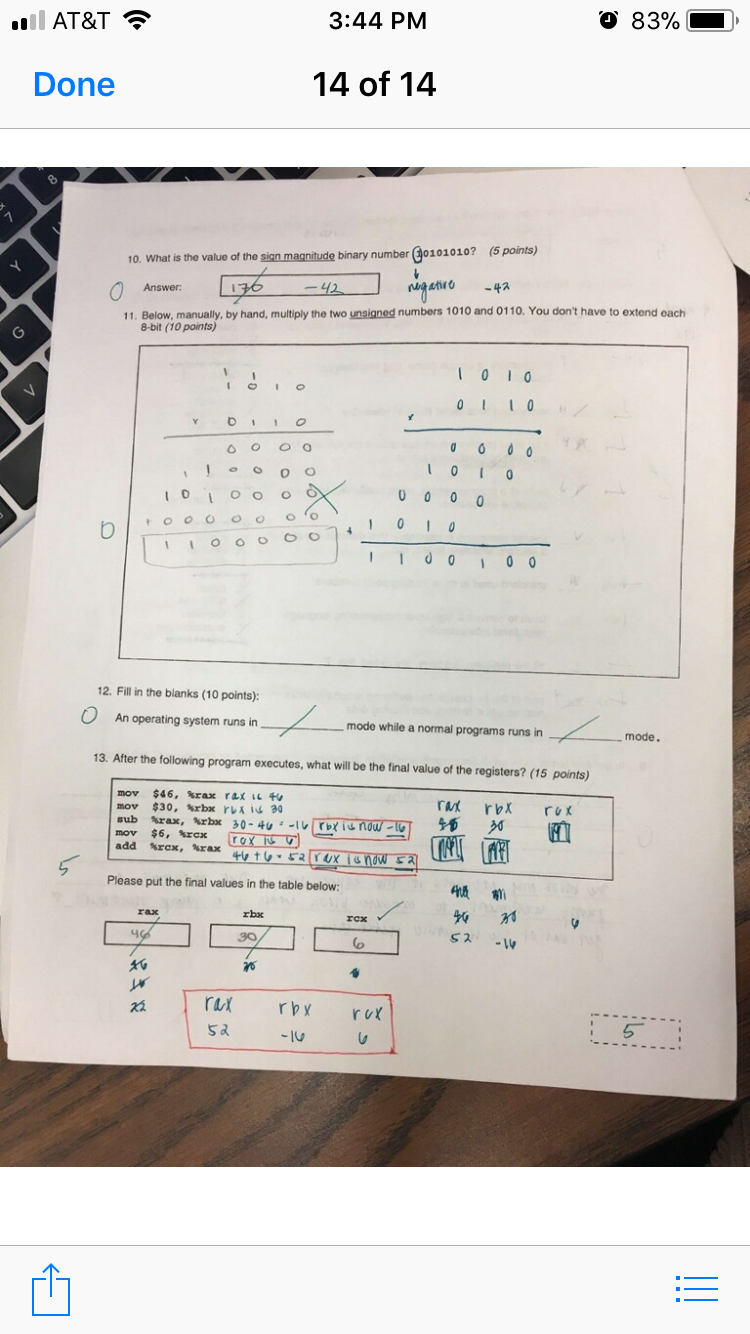 AT&T 3:44 PM 83%
Done 14 of 14
8
7
Y
G
V
10. What is the value of the sign magnitude binary number 10101010? (5 points)
0 Answer: 170 -42 negative -42
11. Below, manually, by hand, multiply the two unsigned numbers 1010 and 0110. You don't have to extend each
8-bit (10 points)
1 1
1 0 1 0
x 0 1 1 0
0 0 0 0
1 1 0 0 0 0
1 0 1 0 0 0 0
+ 0 0 0 0 0 0 0
1 1 0 0 0 0 0
0
1 0 1 0
x 0 1 1 0
0 0 0 0
1 0 1 0
0 0 0 0
+ 1 0 1 0
1 1 0 0 1 0 0
12. Fill in the blanks (10 points):
0 An operating system runs in ________ mode while a normal programs runs in ________ mode.
13. After the following program executes, what will be the final value of the registers? (15 points)
mov $46, %rax rax is 46
mov $30, %rbx rbx is 30
sub %rax, %rbx 30-46=-16 rbx is now -16
mov $6, %rcx rcx is 6
add %rcx, %rax 46+6=52 rax is now 52
rax rbx rcx
46 30
5
Please put the final values in the table below:
46 30 6
52 -16
rax rbx rcx
46 30 6
rax rbx rcx
52 -16 6
5